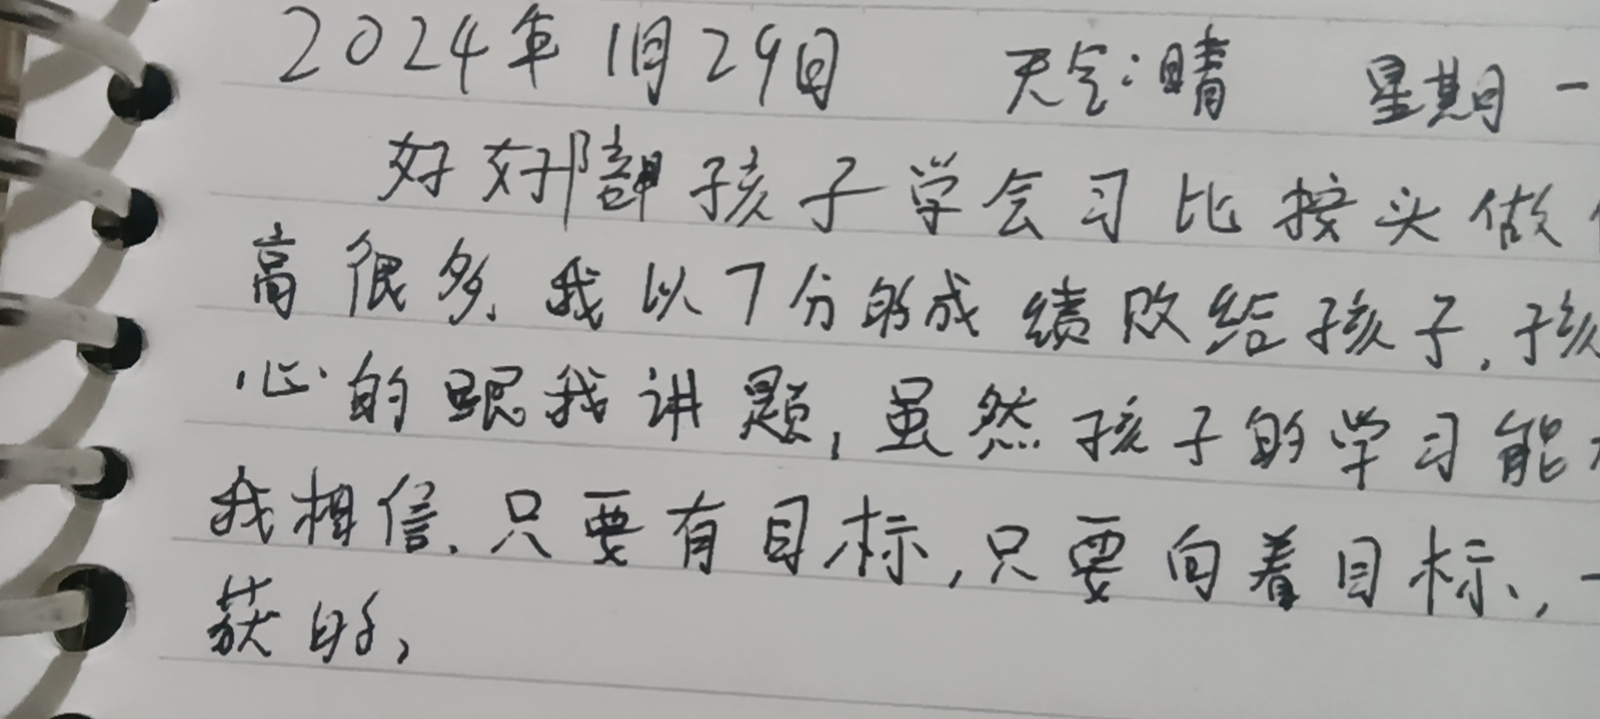 2024年1月29日 天气:晴 星期一
好好陪孩子学会习比接头做
高很多,我以7分的成绩败给孩子,孩
心的跟我讲题,虽然孩子的学习能
我相信,只要有目标,只要向着目标,一
获的,